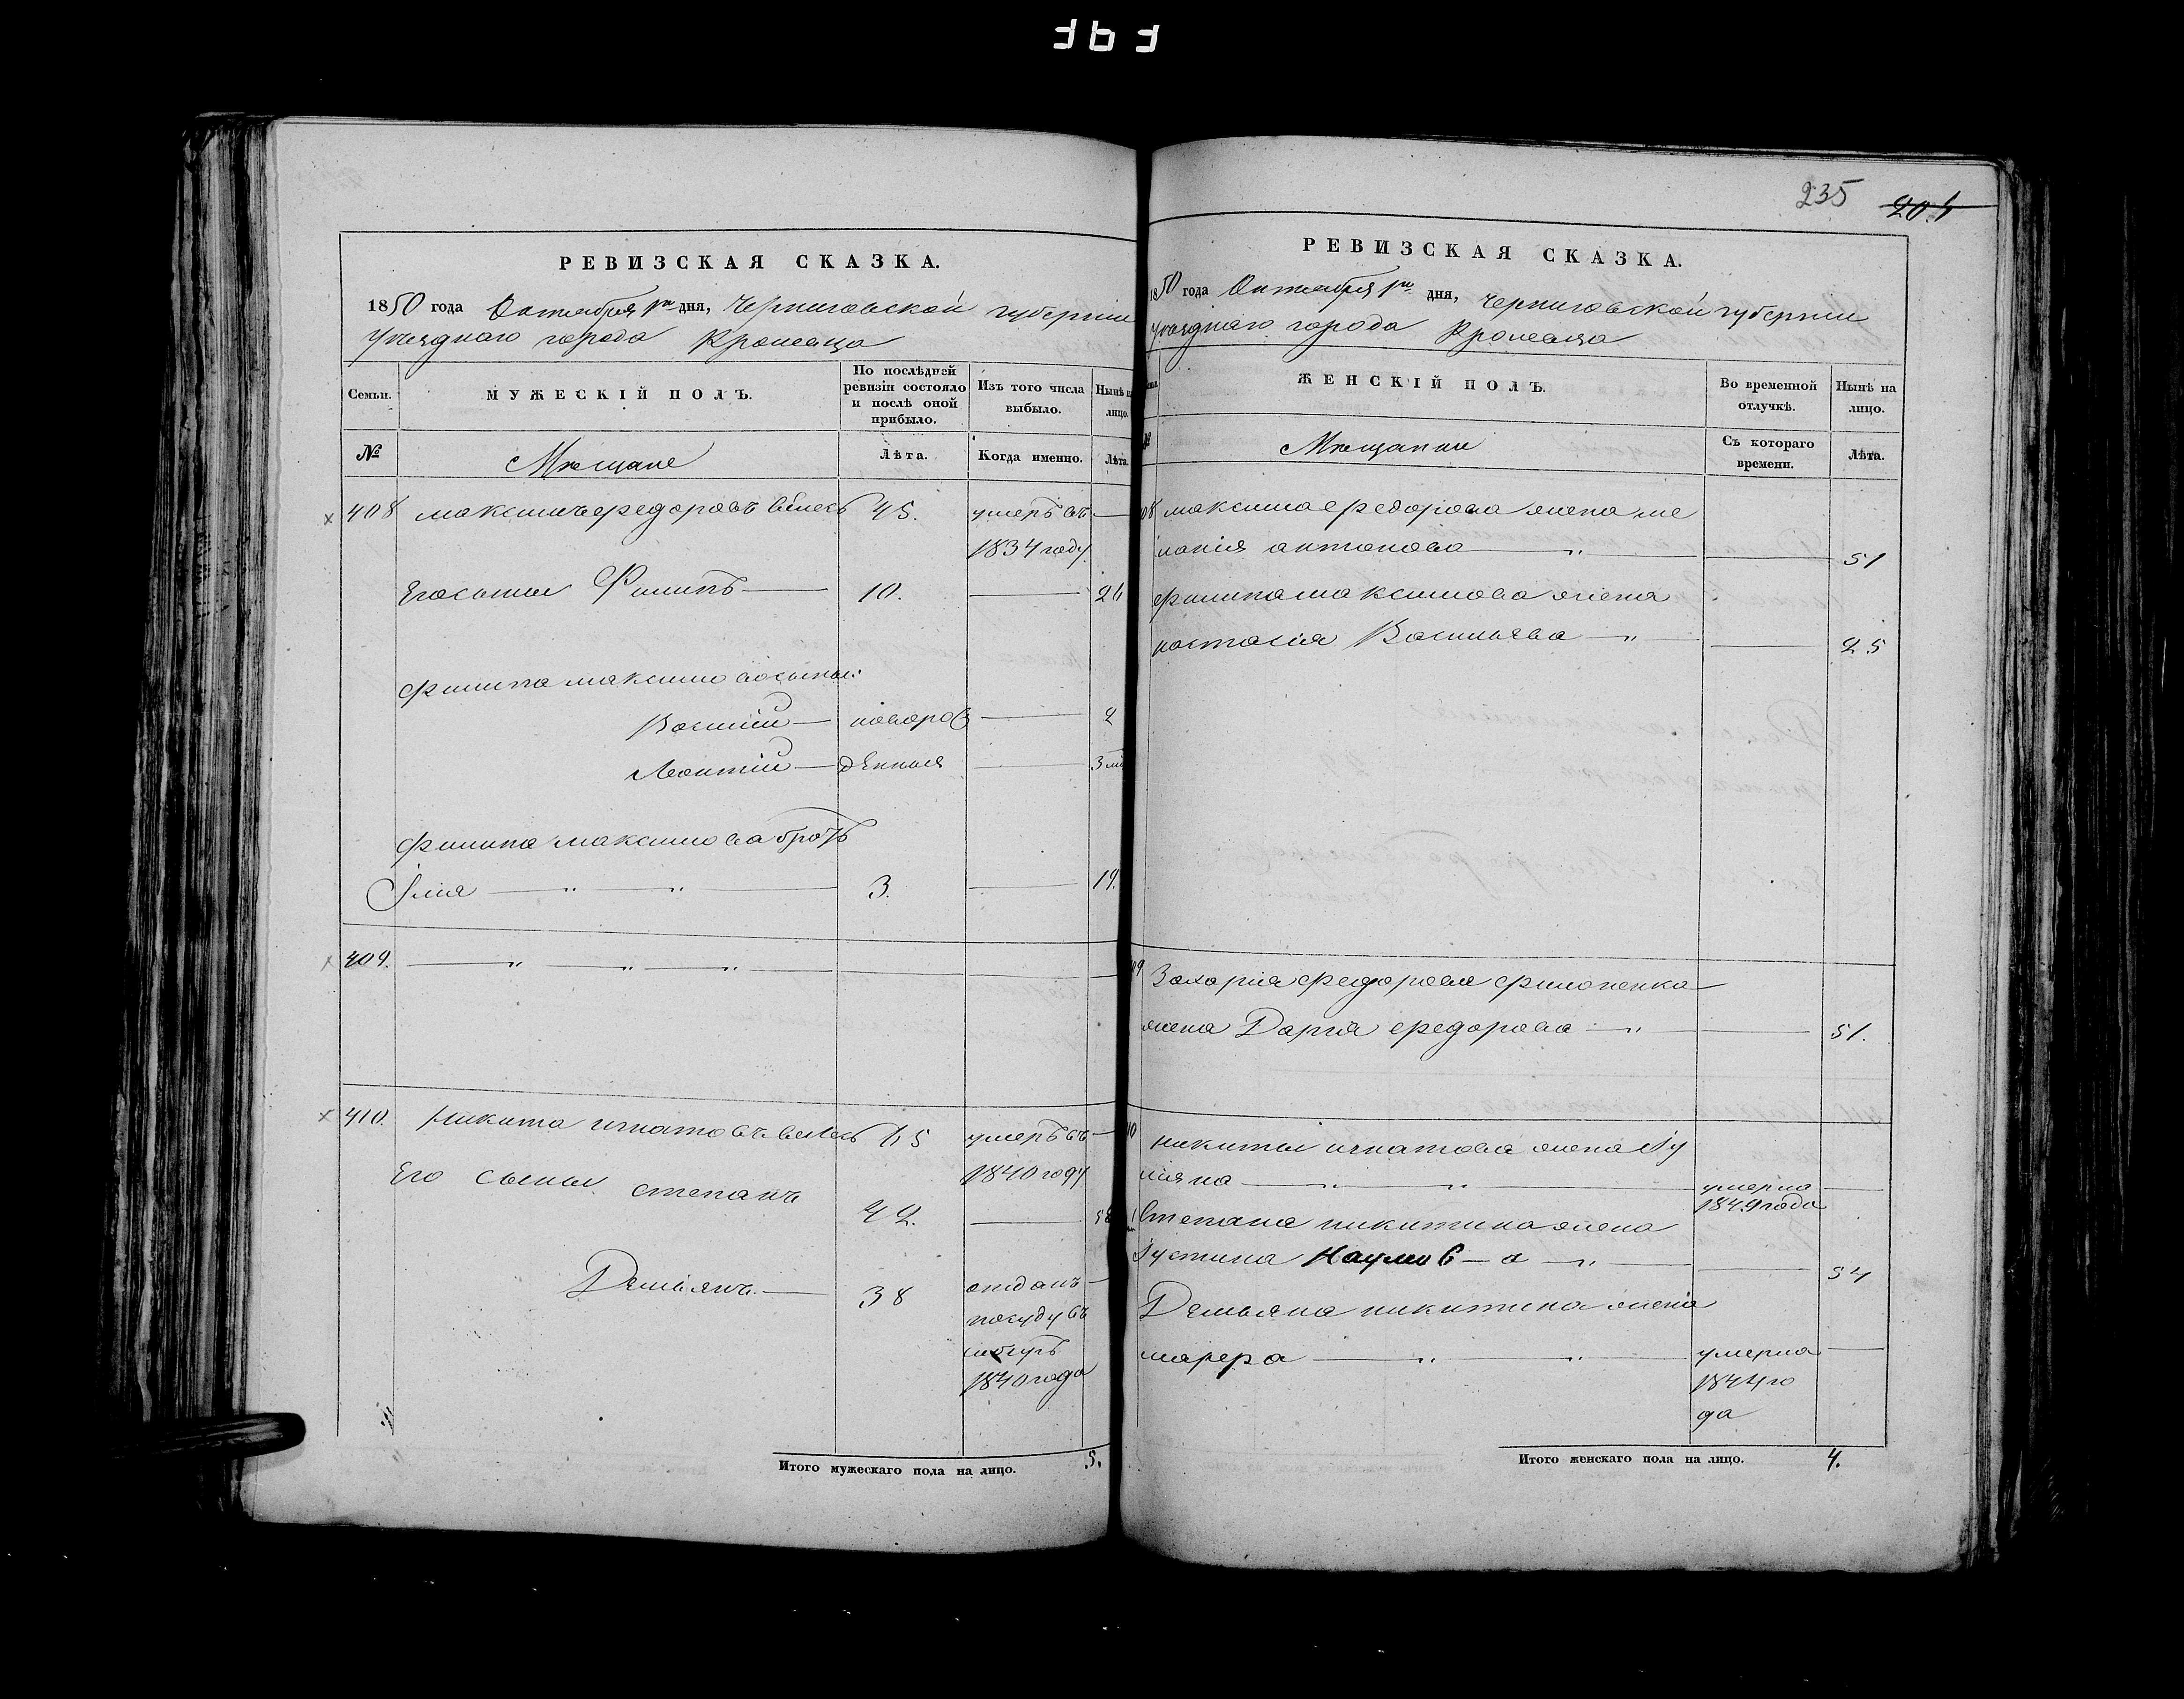 363
РЕВИЗСКАЯ СКАЗКА.
1850 года Октября 1го дня, Черниговской губернии
Уезднаго города Кролевца
Семьи. МУЖЕСКІЙ ПОЛЪ. По послѣдней ревизіи состояло и послѣ оной прибыло. Изъ того числа выбыло. Нынѣ на лицо.
№ Мѣщане Лѣта. Когда именно. Лѣта.
408 максимъ федоровъ 45. умеръ въ
1834 году
Его сыны Филипъ 10. 26
филипа максимова сыны:
Василій новоро 2
Леонтій денныя 3
филипа максимова братъ
Илия 3. 19.
409.
410. никита игнатовъ 65 умеръ въ
1840 году
Его сыны степанъ
42. 58
Демьянъ 38 отданъ
посуду въ
1840 года
Итого мужескаго пола на лицо. 5.
235 204
РЕВИЗСКАЯ СКАЗКА.
1850 года Октября 1го дня, Черниговской губернии
Уезднаго города Кролевца
ЖЕНСКІЙ ПОЛЪ. Во временной отлучкѣ. Нынѣ на лицо.
Мѣщанки Съ котораго времени. Лѣта.
08 максима федорова жена ме
ланія антонова 51
филипа максимова жена
настасія Васильева 25
09 Захарія федорова филоненка
жена Дарія федорова 51.
10 никиты игнатова жена Иу
ліяна умерла
1849 года
Степана никитина жена
Иустина Наумова 54
Демьяна никитина жена
марфа умерла
1844 го
да
Итого женскаго пола на лицо. 4.